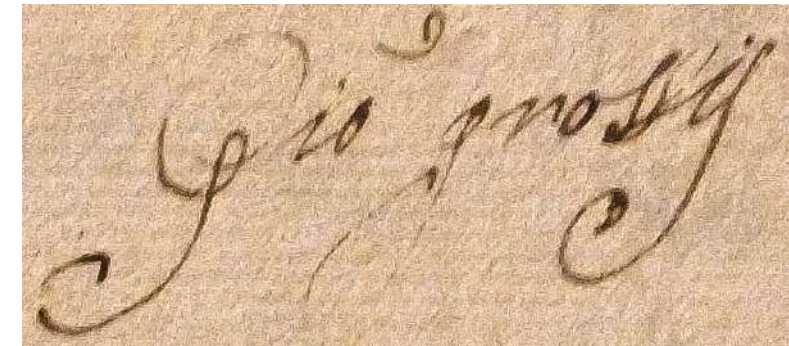 Gio grossij